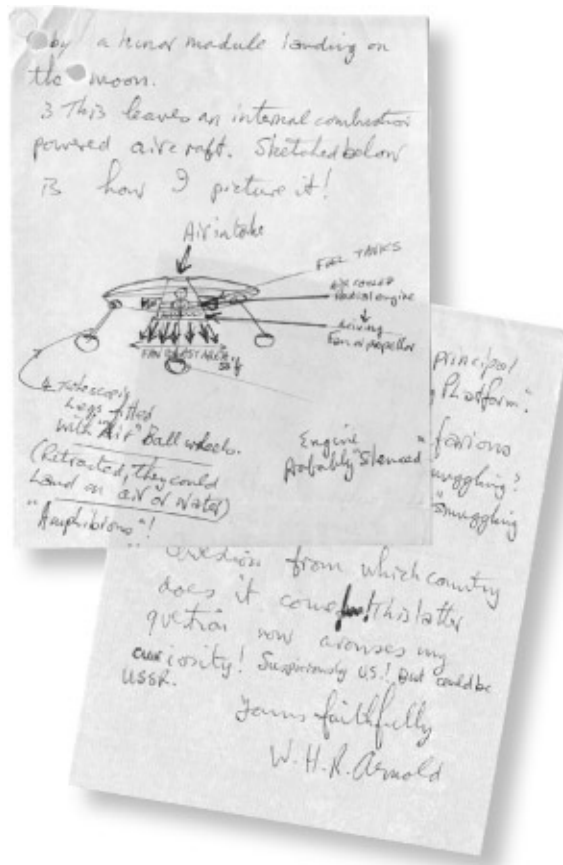 by a lunar module landing on
the moon.
3 This leaves an internal combustion
powered aircraft. Sketched below
is how I picture it!
Air intake
FUEL TANKS
AIR COOLED
Radial engine
driving
Fan or propeller
FAN BLAST AREA
4 telescopic
Legs fitted
with "Air" Ball wheels.
(Retracted, they could
Land on air or water)
"Amphibious"!
Engine
probably "Silenced"
principal
Platform".
farious
muggling?
"Smuggling
question from which country
does it come! This latter
question now arouses my
curiosity! Suspiciously U.S.! But could be
USSR.
Yours faithfully
W.H.R. Arnold